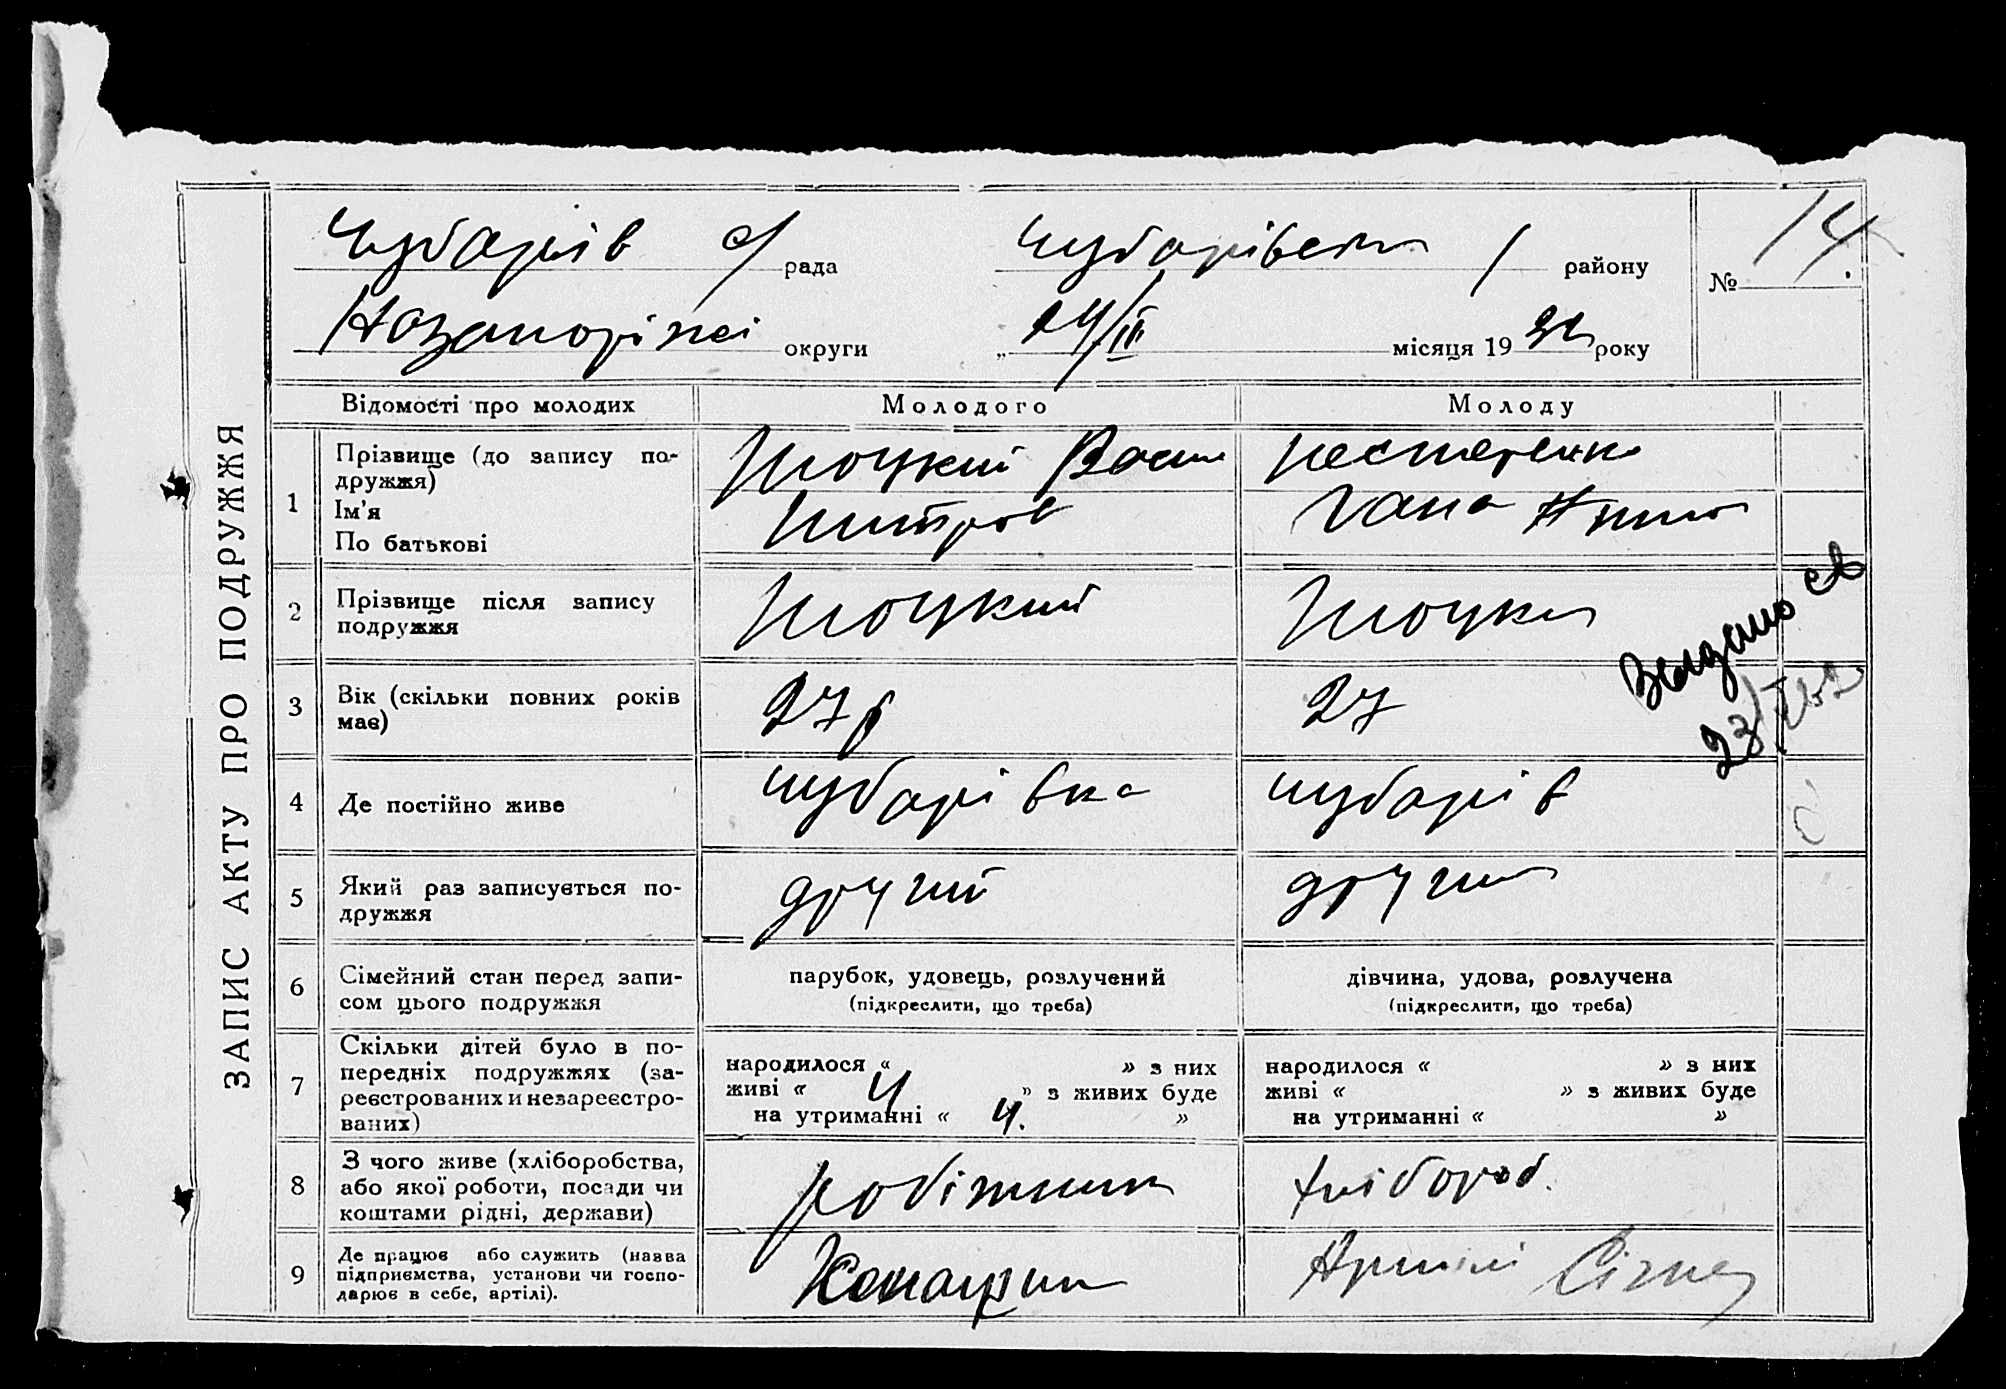 ЗАПИС АКТУ ПРО ПОДРУЖЖЯ
Чубарів с/рада Чубарівськ / району № 14
округи „ 24/III місяця 1932 року
Відомості про молодих Молодого Молоду
1 Прізвище (до запису по-
дружжя)
Ім'я
По батькові
Шоцкий Васи
Нестеренко
Гана
2 Прізвище після запису
подружжя
Шоцкий Шоцки
3 Вік (скільки повних років
має)
27 р 27
Видано св
23/
4 Де постійно живе Чубарівка Чубарів
5 Який раз записується по-
дружжя
другий други
6 Сімейний стан перед запи-
сом цього подружжя
парубок, удовець, розлучений
(підкреслити, що треба)
дівчина, удова, розлучена
(підкреслити, що треба)
7 Скільки дітей було в по-
передніх подружжях (за-
реєстрованих и незареєстро-
ваних)
народилося « » з них
живі « 4 » з живих буде
на утриманні « 4. »
народилося « » з них
живі « » з живих буде
на утриманні « »
8 З чого живе (хліборобства,
або якої роботи, посади чи
коштами рідні, держави)
робітник хлібороб.
9 Де працює або служить (назва
підприємства, установи чи госпо-
дарює в себе, артілі).
Артілі